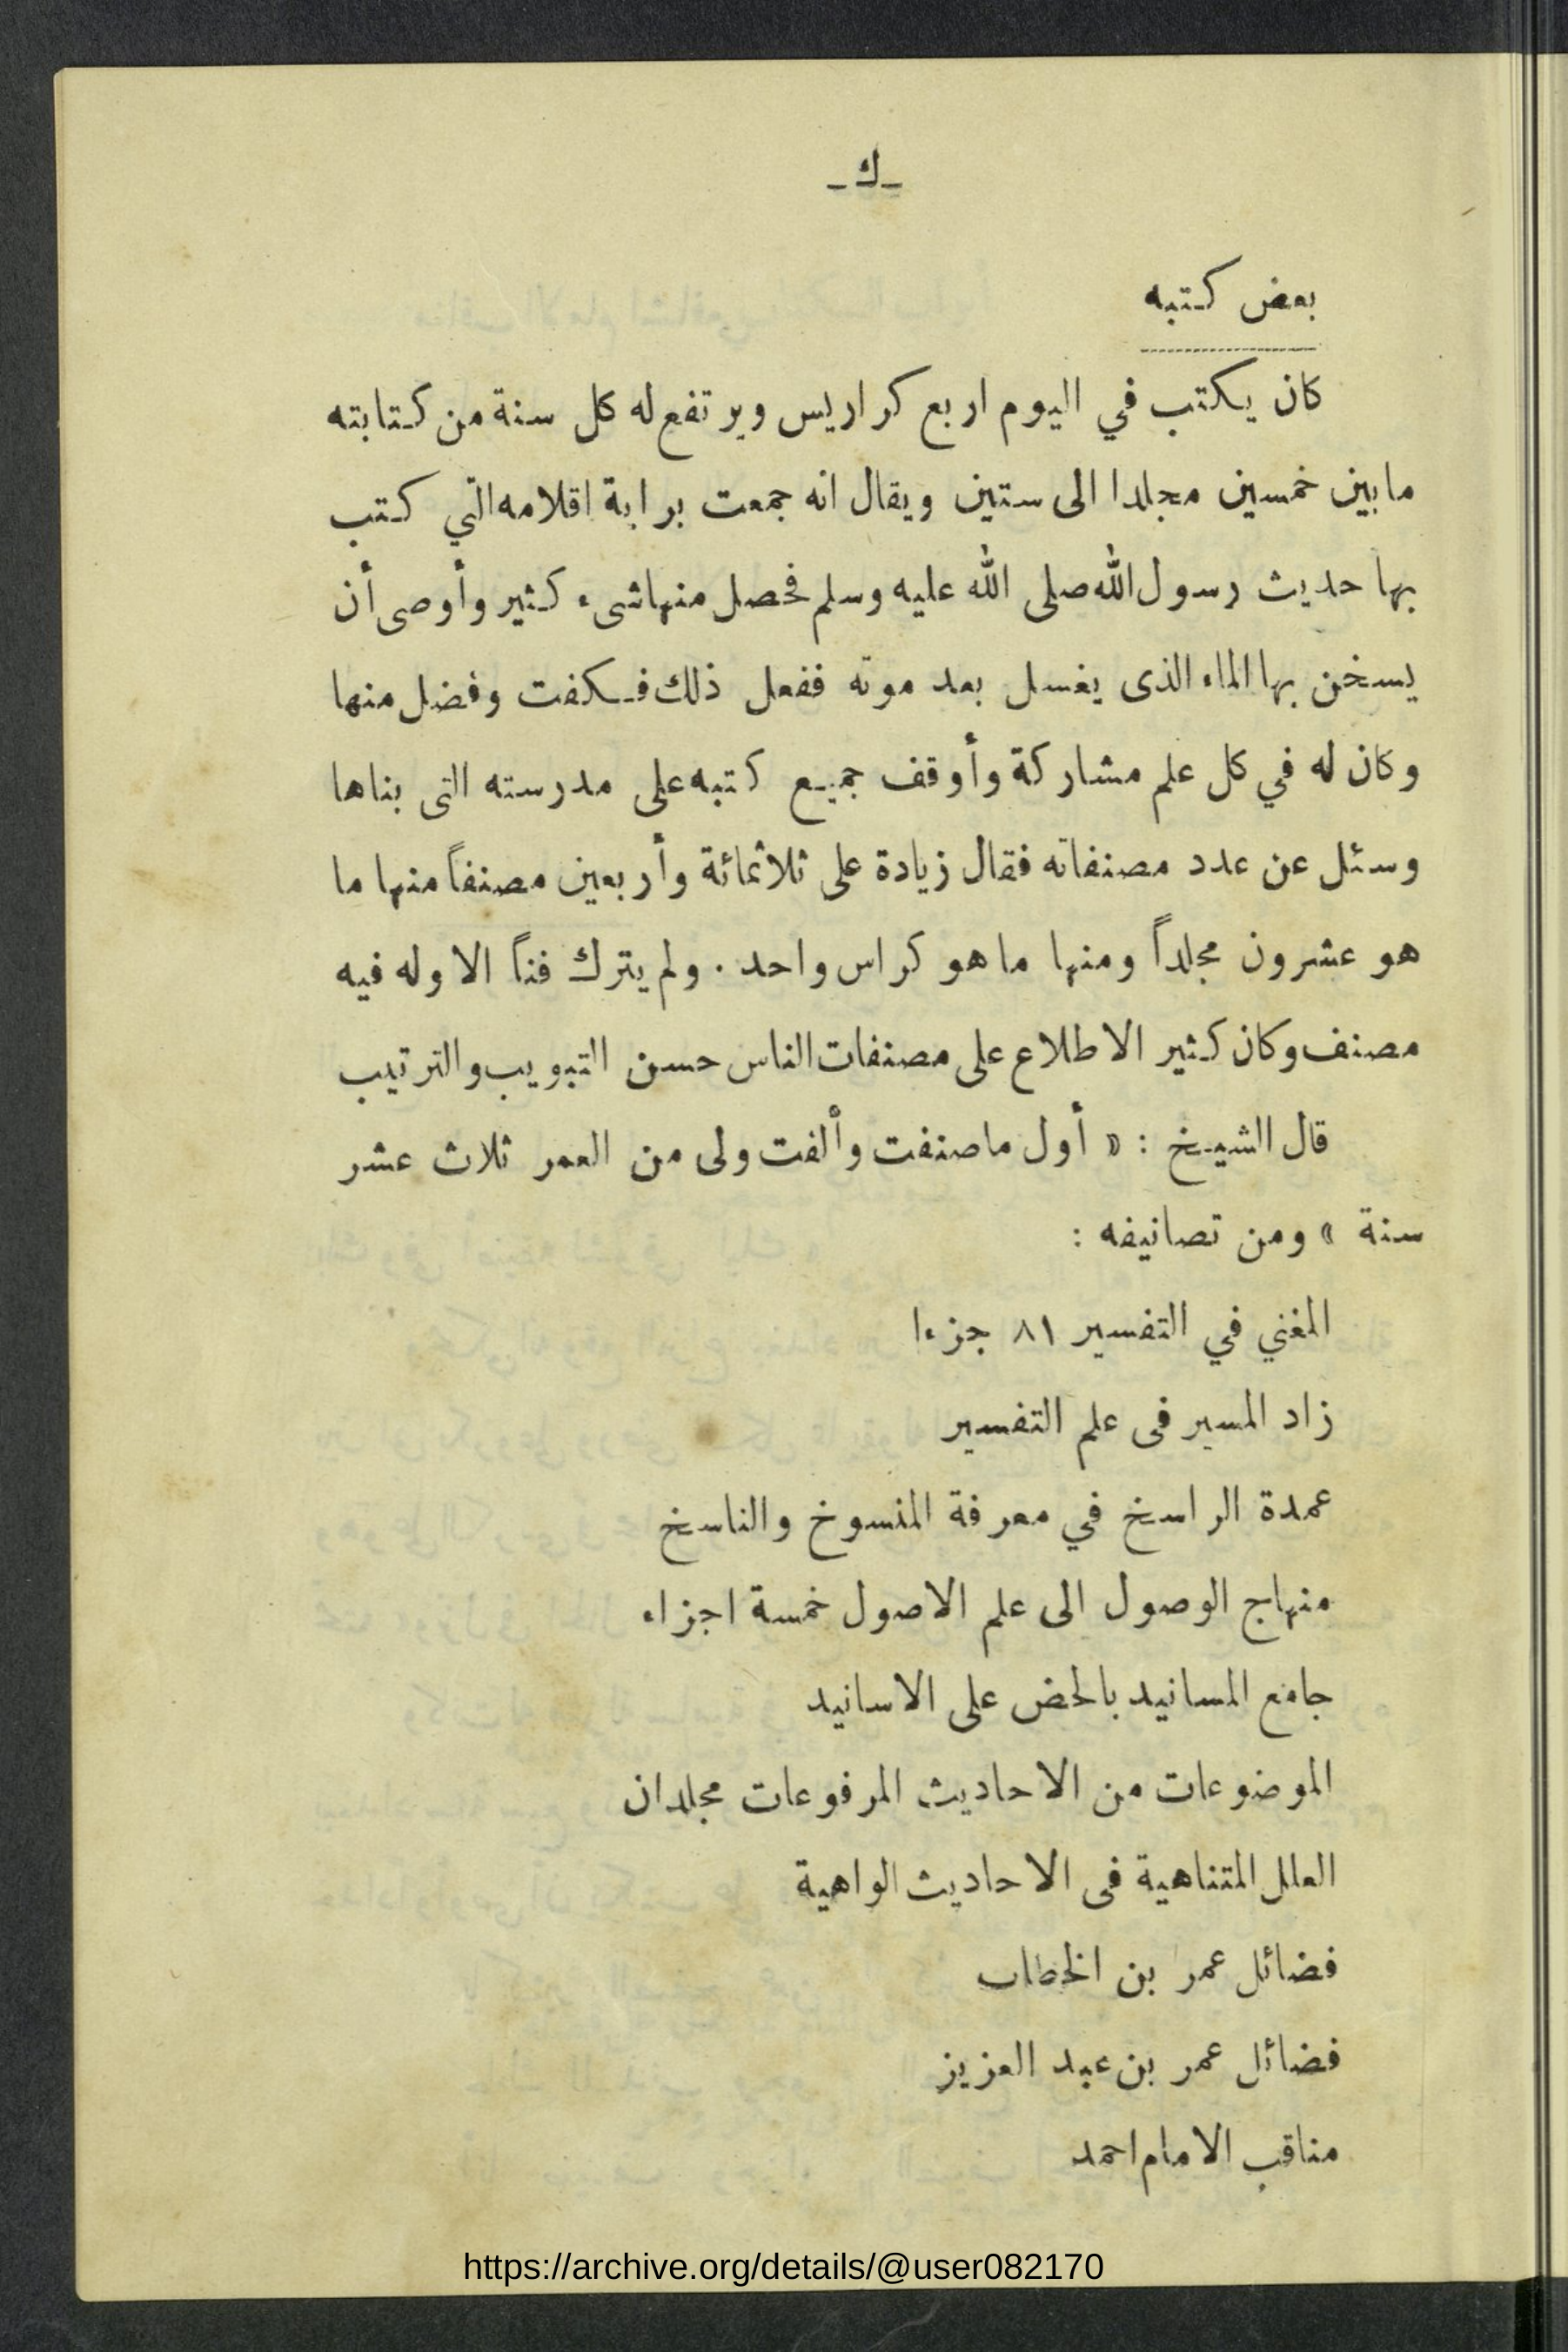 ـ ك ـ
بعض كتبه
كان يكتب في اليوم اربع كراريس ويرتفع له كل سنة من كتابته
مابين خمسين مجلدا الى ستين ويقال انه جمعت براية اقلامه التي كتب
بها حديث رسول الله صلى الله عليه وسلم فحصل منها شىء كثير وأوصى أن
يسخن بها الماء الذى يغسل بعد موته ففعل ذلك فكفت وفضل منها
وكان له في كل علم مشاركة وأوقف جميع كتبه على مدرسته التى بناها
وسئل عن عدد مصنفاته فقال زيادة على ثلاثمائة وأربعين مصنفاً منها ما
هو عشرون مجلداً ومنها ما هو كراس واحد . ولم يترك فناً الا وله فيه
مصنف وكان كثير الاطلاع على مصنفات الناس حسن التبويب والترتيب
قال الشيخ : « أول ماصنفت وألفت ولى من العمر ثلاث عشر
سنة » ومن تصانيفه :
المغني في التفسير ٨١ جزءا
زاد المسير فى علم التفسير
عمدة الراسخ في معرفة المنسوخ والناسخ
منهاج الوصول الى علم الاصول خمسة اجزاء
جامع المسانيد بالحض على الاسانيد
الموضوعات من الاحاديث المرفوعات مجلدان
العلل المتناهية فى الاحاديث الواهية
فضائل عمر بن الخطاب
فضائل عمر بن عبد العزيز
مناقب الامام احمد
https://archive.org/details/@user082170